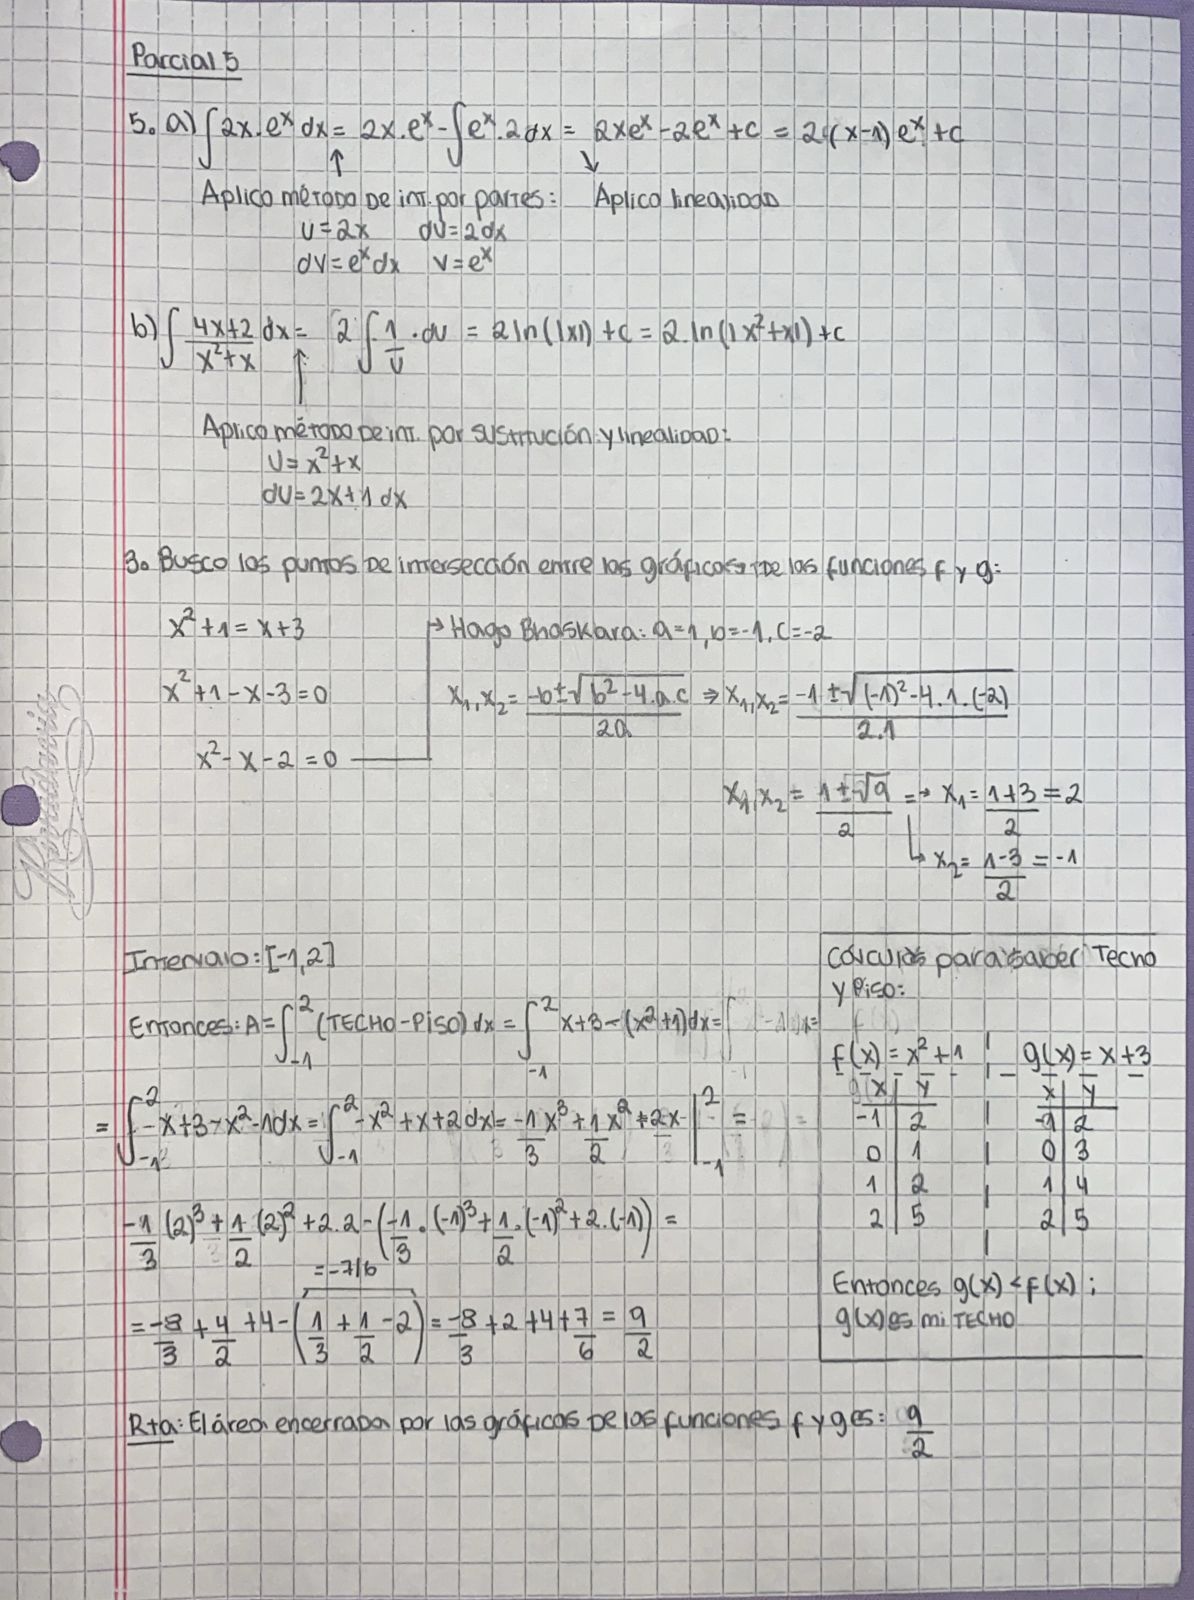 Parcial 5
5. a) ∫ 2x.eˣ dx = 2x.eˣ - ∫ eˣ.2 dx = 2xeˣ - 2eˣ + c = 2.(x-1)eˣ + c
Aplico método De int. por partes: Aplico linealidad
u=2x du=2dx
dv=eˣdx v=eˣ
b) ∫ (4x+2)/(x²+x) dx = 2 ∫ 1/u . du = 2 ln(|x|) + c = 2.ln(|x²+x|) + c
Aplico método De int. por sustitución y linealidad:
u=x²+x
du=2x+1 dx
3. Busco los puntos De intersección entre los gráficos De las funciones f y g:
x²+1 = x+3 → Hago Bhaskara: a=1, b=-1, c=-2
x²+1-x-3=0 x₁,x₂ = (-b±√(b²-4.a.c))/2a ⇒ x₁,x₂ = (-1±√((-1)²-4.1.(-2)))/2.1
x²-x-2=0
x₁,x₂ = (1±√9)/2 = → x₁ = (1+3)/2 = 2
↳ x₂ = (1-3)/2 = -1
Intervalo: [-1,2]
Entonces: A = ∫₋₁² (TECHO-PISO) dx = ∫₋₁² x+3-(x²+1)dx =
= ∫₋₁² -x+3-x²-1dx = ∫₋₁² -x²+x+2dx = -1/3 x³ + 1/2 x² + 2x |₋₁² =
-1/3 (2)³ + 1/2 (2)² + 2.2 - (-1/3 . (-1)³ + 1/2 . (-1)² + 2.(-1)) =
= -7/6
= -8/3 + 4/2 + 4 - (1/3 + 1/2 - 2) = -8/3 + 2 + 4 + 7/6 = 9/2
Cálculos para saber Techo
y Piso:
f(x) = x²+1 | g(x) = x+3
x | y x | y
-1 | 2 -1 | 2
0 | 1 0 | 3
1 | 2 1 | 4
2 | 5 2 | 5
Entonces g(x) < f(x);
g(x) es mi TECHO
Rta: El área encerrada por las gráficas De las funciones f y g es: 9/2